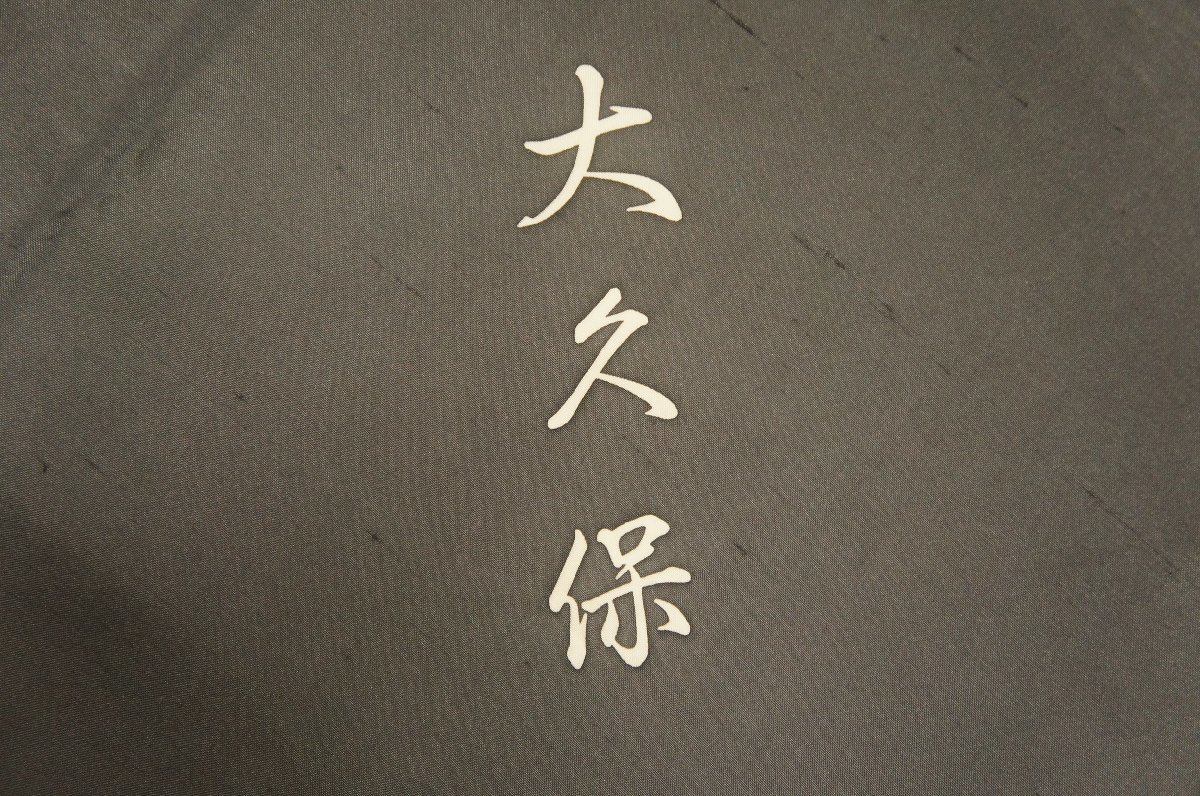 大久保